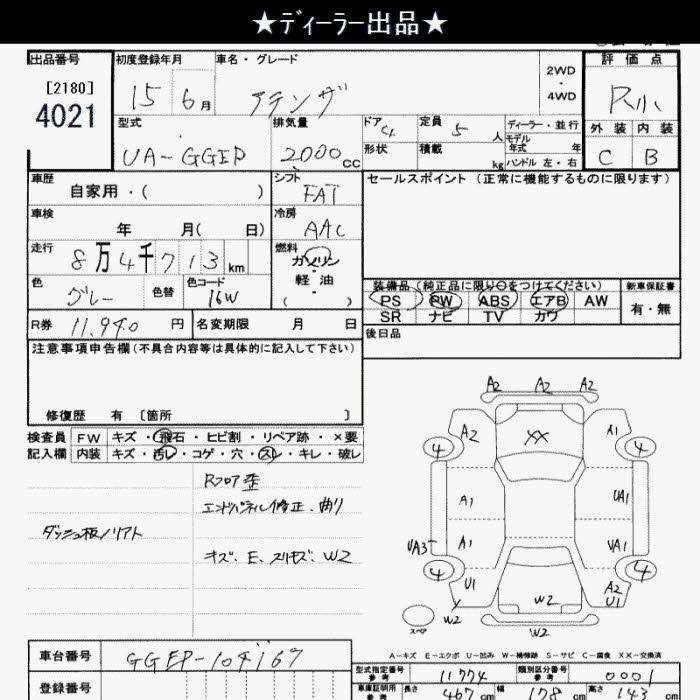 ★ディーラー出品★
出品番号
[2180]
4021
初度登録年月
15 6月
車名・グレード
アテンザ
2WD
・
4WD
評価点
R小
外装 内装
C B
型式
UA-GGEP
排気量
2000cc
ドア
形状
定員 5人
積載 kg
ディーラー・並行
モデル年式 年
ハンドル 左・右
車歴
自家用・( )
シフト
FAT
セールスポイント (正常に機能するものに限ります)
車検
年 月( 日)
冷房
AAC
走行
8万4千713km
燃料
ガソリン
・
軽油
( ・ )
色
グレー
色替
色コード
16W
装備品(純正品に限り○をつけてください)
PS PW ABS エアB AW
SR ナビ TV カワ
新車保証書
有・無
R券 11,940円
名変期限 月 日
後日品
注意事項申告欄(不具合内容等は具体的に記入して下さい)
修復歴 有 〔箇所 〕
検査員
記入欄
FW キズ・飛石・ヒビ割・リペア跡・×要
内装 キズ・汚レ・コゲ・穴・スレ・キレ・破レ
Rフロア歪
エンドパネル修正、曲り
ダッシュ板ノリアト
キズ、E、スリキズ、W2
A2 A2 A2
A2 XX A1
4 4
A1 UA1
UA3 A1 UA1
4 4
U1 A2
U1
W2 W2
スペア
W2
A-キズ E-エクボ U-凹み W-補修跡 S-サビ C-腐食 XX-交換済
車台番号
GGEP-104167
登録番号
型式指定番号
参考
11774
類別区分番号
参考
0001
車庫証明用
参考
長さ 467cm 幅 178cm 高さ 143cm